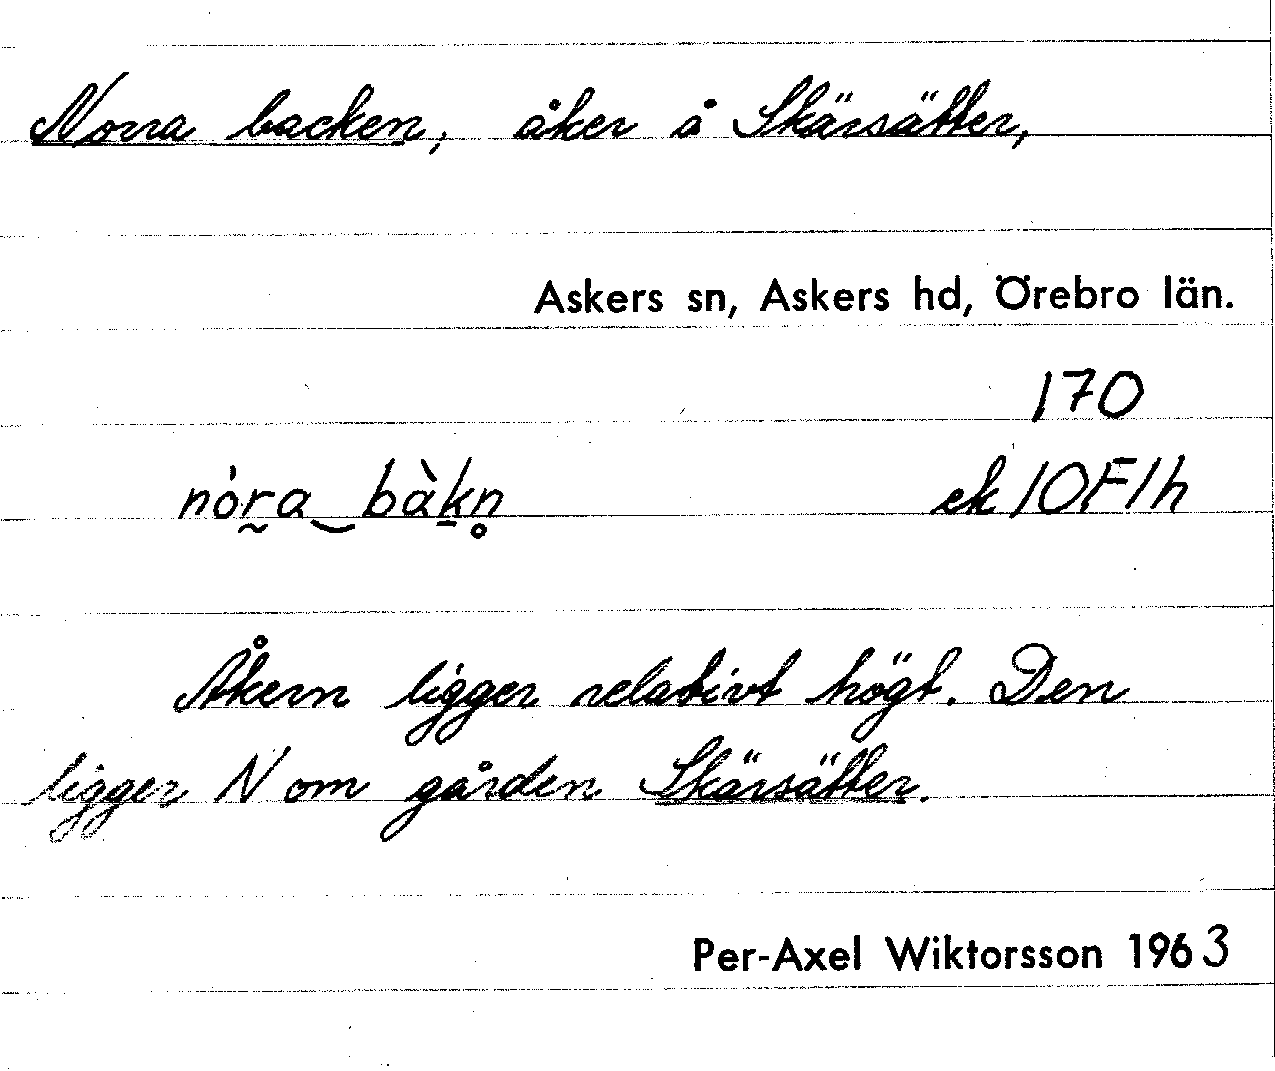 Norra backen, åker å Skärsätter,
Askers sn, Askers hd, Örebro län.
170
nòr̰a‿bàk̠n̥ ek 10F1h
Åkern ligger relativt högt. Den
ligger N om gården Skärsätter.
Per-Axel Wiktorsson 1963